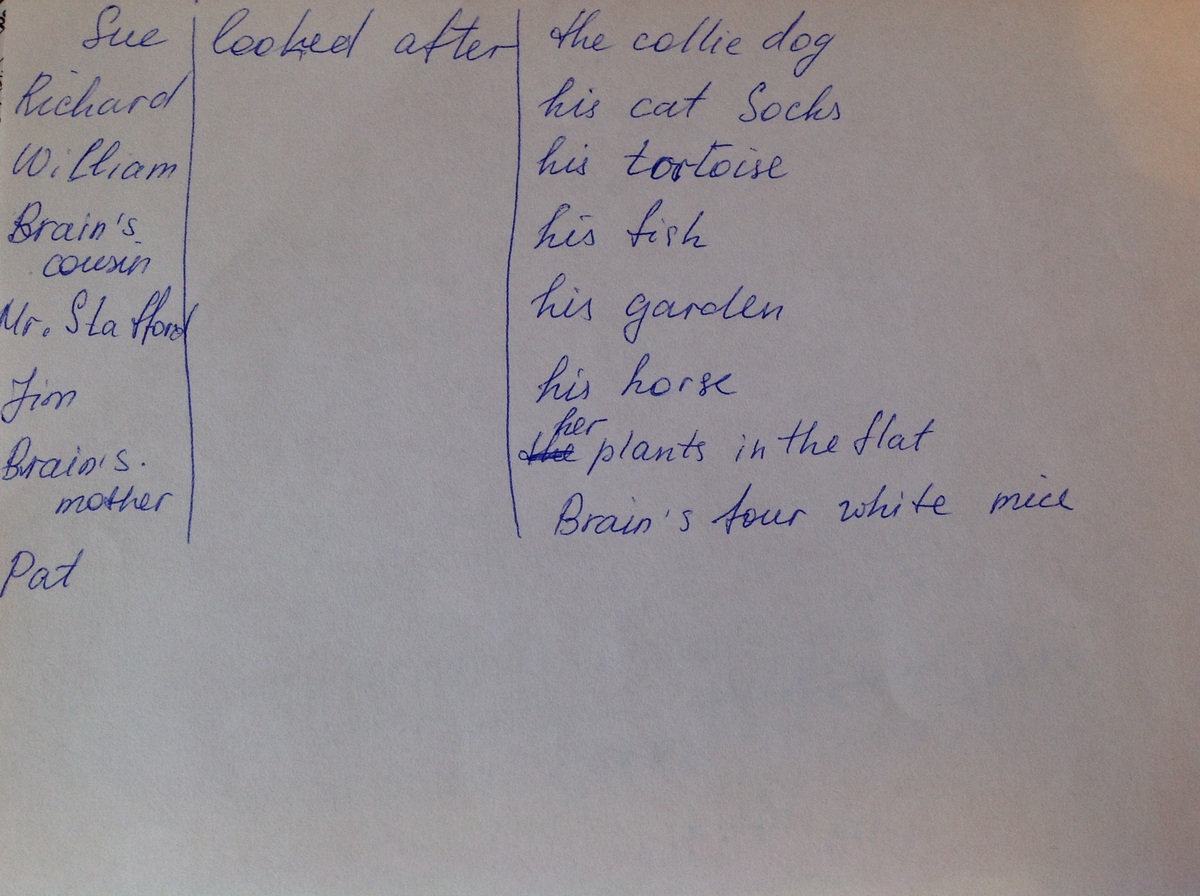 Sue looked after the collie dog
Richard his cat Socks
William his tortoise
Brain's his fish
cousin
Mr. Stafford his garden
Jim his horse
her
Brain's the plants in the flat
mother Brain's four white mice
Pat